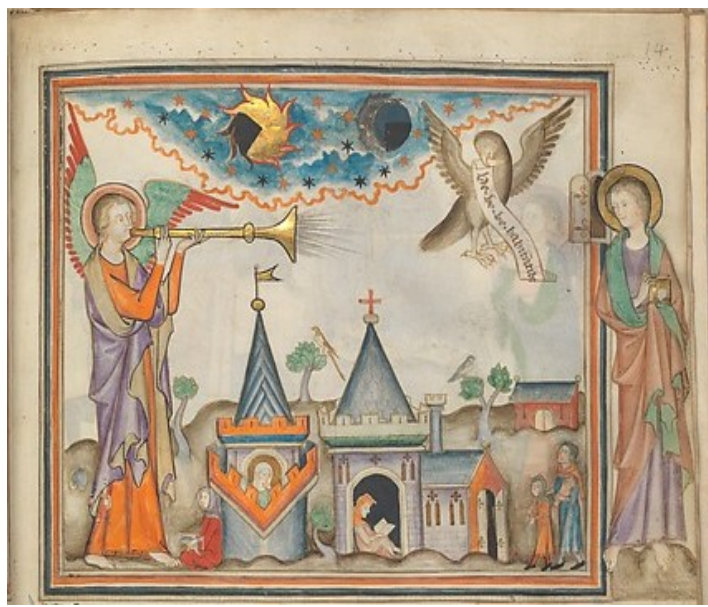 14
ve.ve.ve.habitantib